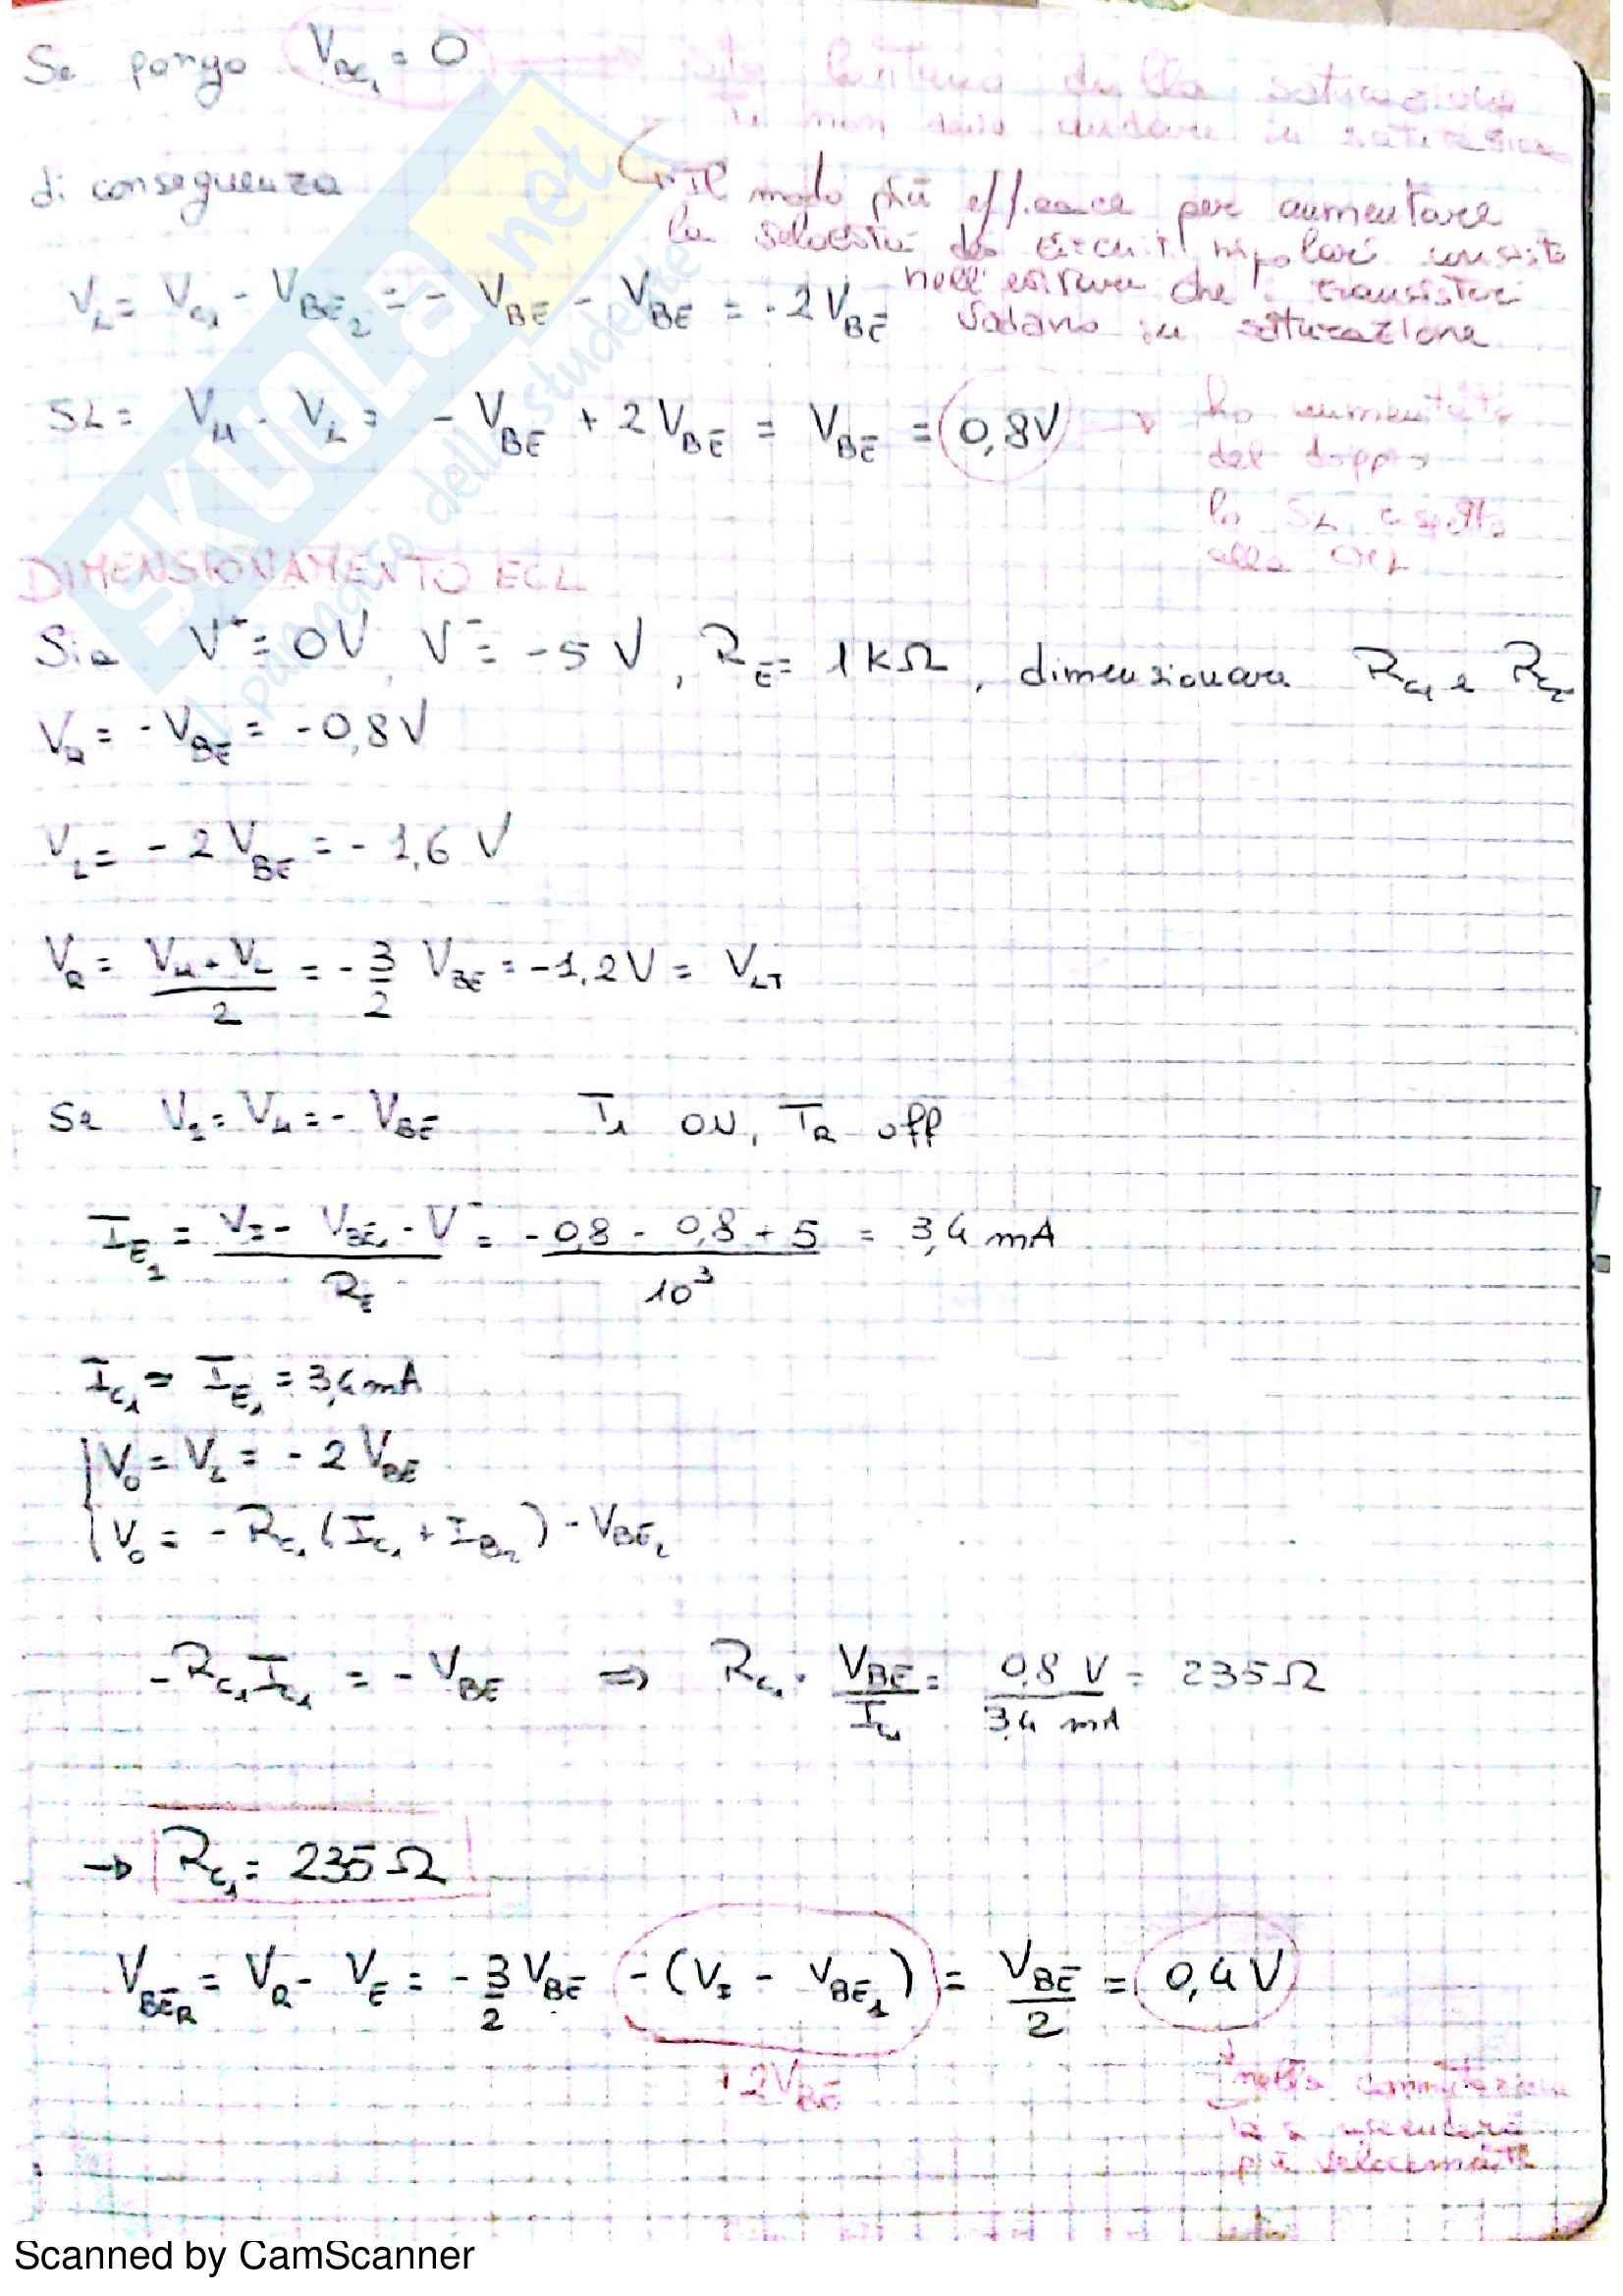 Se pongo V_BC1 = 0 → limite della saturazione
T1 non deve andare in saturazione
di conseguenza
Il modo più efficace per aumentare
la velocità dei circuiti bipolari consiste
nell'evitare che i transistori
vadano in saturazione
V_L = V_C1 - V_BE2 = - V_BE - V_BE = -2V_BE
SL = V_H - V_L = - V_BE + 2V_BE = V_BE = 0,8V →
ho aumentato
del doppio
la SL rispetto
alla
DIMENSIONAMENTO ECL
Sia V⁺ = 0V, V⁻ = -5V, R_E = 1kΩ, dimensionare R_C1 e R_C2
V_H = -V_BE = -0,8V
V_L = -2V_BE = -1,6V
V_R = (V_H + V_L)/2 = -3/2 V_BE = -1,2V = V_LT
Se V_I = V_H = - V_BE T1 ON, T_R off
I_E1 = (V_I - V_BE1 - V⁻)/R_E = (-0,8 - 0,8 + 5)/10³ = 3,4 mA
I_C1 ≃ I_E1 = 3,4 mA
V_O = V_L = - 2 V_BE
V_O = - R_C1 (I_C1 + I_B2) - V_BE2
-R_C1 I_C1 = - V_BE ⇒ R_C1 = V_BE/I_C1 = 0,8 V/3,4 mA = 235Ω
→ R_C1 = 235Ω
V_BER = V_R - V_E = -3/2 V_BE - (V_I - V_BE1) = V_BE/2 = 0,4V
+2V_BE
nella commutazione
più velocemente
SKUOLA.net
il paradiso dello studente
Scanned by CamScanner